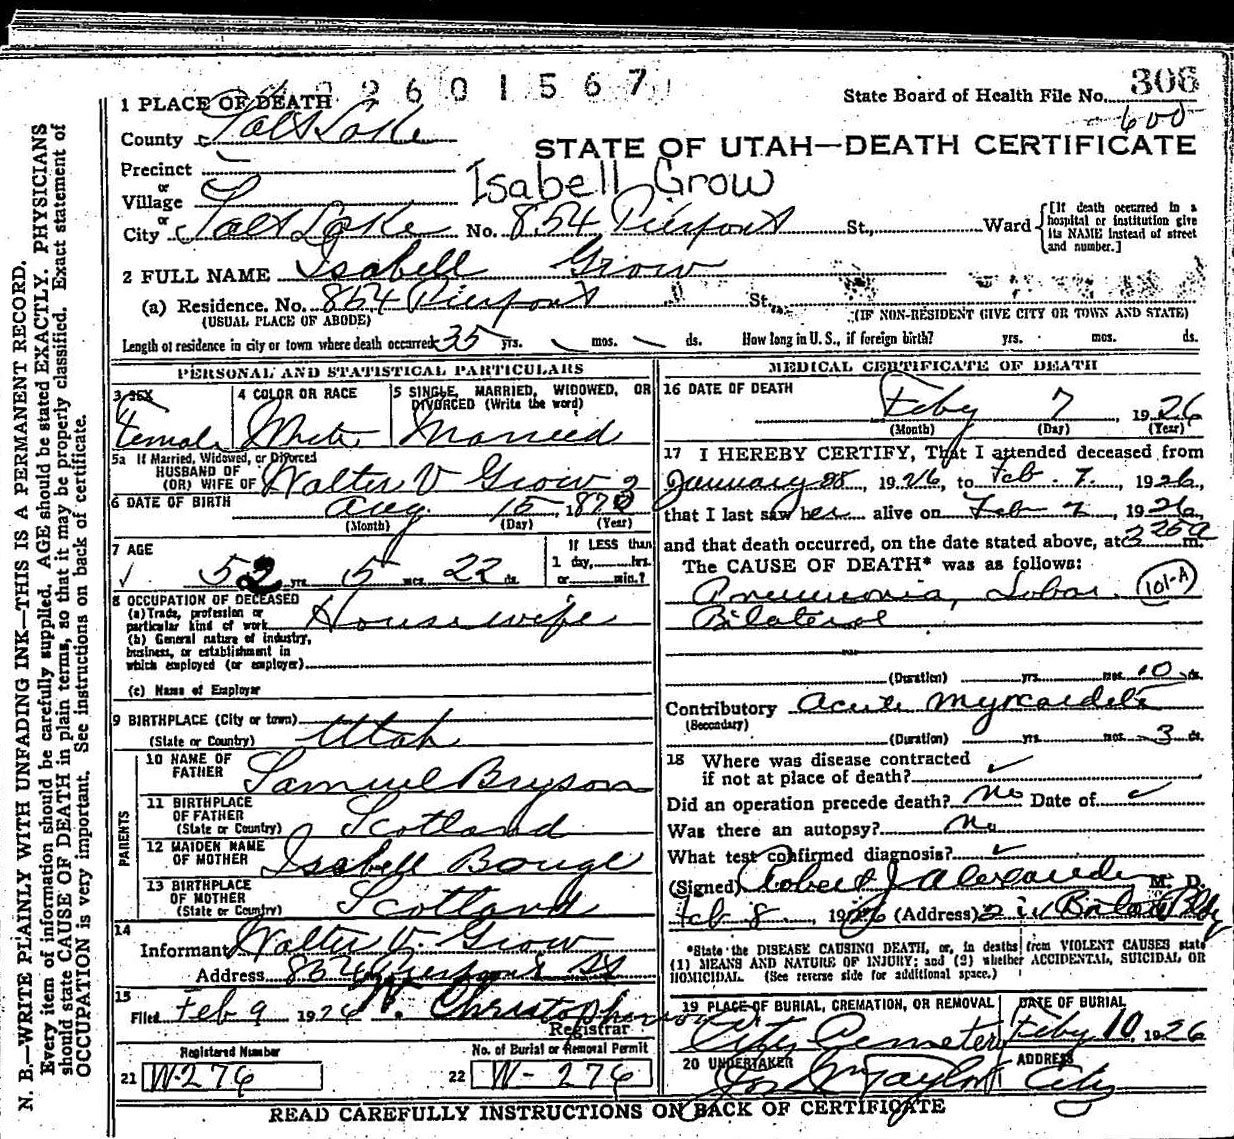 2601567
306
State Board of Health File No.
600
1 PLACE OF DEATH
County Salt Lake
STATE OF UTAH—DEATH CERTIFICATE
Precinct
Isabell Grow
or
Village
or
City Salt Lake No. 854 Pierpont St., Ward
[If death occurred in a hospital or institution give its NAME instead of street and number.]
2 FULL NAME Isabell Grow
(a) Residence. No. 854 Pierpont St.
(USUAL PLACE OF ABODE)
(IF NON-RESIDENT GIVE CITY OR TOWN AND STATE)
Length of residence in city or town where death occurred 35 yrs. mos. ds. How long in U. S., if foreign birth? yrs. mos. ds.
PERSONAL AND STATISTICAL PARTICULARS
3 SEX
Female
4 COLOR OR RACE
White
5 SINGLE, MARRIED, WIDOWED, OR DIVORCED (Write the word)
Married
5a If Married, Widowed, or Divorced
HUSBAND OF
(OR) WIFE OF Walter V Grow
6 DATE OF BIRTH Aug 15, 187
(Month) (Day) (Year)
7 AGE
52 yrs. 5 mos. 22 ds.
If LESS than
1 day, hrs.
or min.?
8 OCCUPATION OF DECEASED
(a) Trade, profession or
particular kind of work Housewife
(b) General nature of industry,
business, or establishment in
which employed (or employer)
(c) Name of Employer
9 BIRTHPLACE (City or town)
(State or Country) Utah
PARENTS
10 NAME OF FATHER Samuel Bryson
11 BIRTHPLACE OF FATHER
(State or Country) Scotland
12 MAIDEN NAME OF MOTHER Isabell Bouge
13 BIRTHPLACE OF MOTHER
(State or Country) Scotland
14
Informant Walter V. Grow
Address 854 Pierpont St
15
Filed Feb 9 1926 Christopherson
Registrar
Registered Number
21 W-276
No. of Burial or Removal Permit
22 W-276
MEDICAL CERTIFICATE OF DEATH
16 DATE OF DEATH
Feby 7, 1926
(Month) (Day) (Year)
17 I HEREBY CERTIFY, That I attended deceased from
January 28, 1926, to Feb. 7, 1926,
that I last saw her alive on Feb 7, 1926,
and that death occurred, on the date stated above, at 3 25a m.
The CAUSE OF DEATH* was as follows:
Pneumonia, Lobar. 101-A
Bilateral
(Duration) yrs. mos. 10 ds.
Contributory Acute Myocarditis
(Secondary)
(Duration) yrs. mos. 3 ds.
18 Where was disease contracted
if not at place of death?
Did an operation precede death? No Date of
Was there an autopsy? No
What test confirmed diagnosis?
(Signed) Robert J Alexander M. D.
Feb 8, 1926 (Address)
*State the DISEASE CAUSING DEATH, or, in deaths from VIOLENT CAUSES state
(1) MEANS AND NATURE OF INJURY; and (2) whether ACCIDENTAL, SUICIDAL OR
HOMICIDAL. (See reverse side for additional space.)
19 PLACE OF BURIAL, CREMATION, OR REMOVAL
City Cemetery
DATE OF BURIAL
Feby 10 1926
20 UNDERTAKER
Jos Wm Taylor
ADDRESS
City
READ CAREFULLY INSTRUCTIONS ON BACK OF CERTIFICATE
N. B.—WRITE PLAINLY WITH UNFADING INK—THIS IS A PERMANENT RECORD.
Every item of information should be carefully supplied. AGE should be stated EXACTLY. PHYSICIANS
should state CAUSE OF DEATH in plain terms, so that it may be properly classified. Exact statement of
OCCUPATION is very important. See instructions on back of certificate.